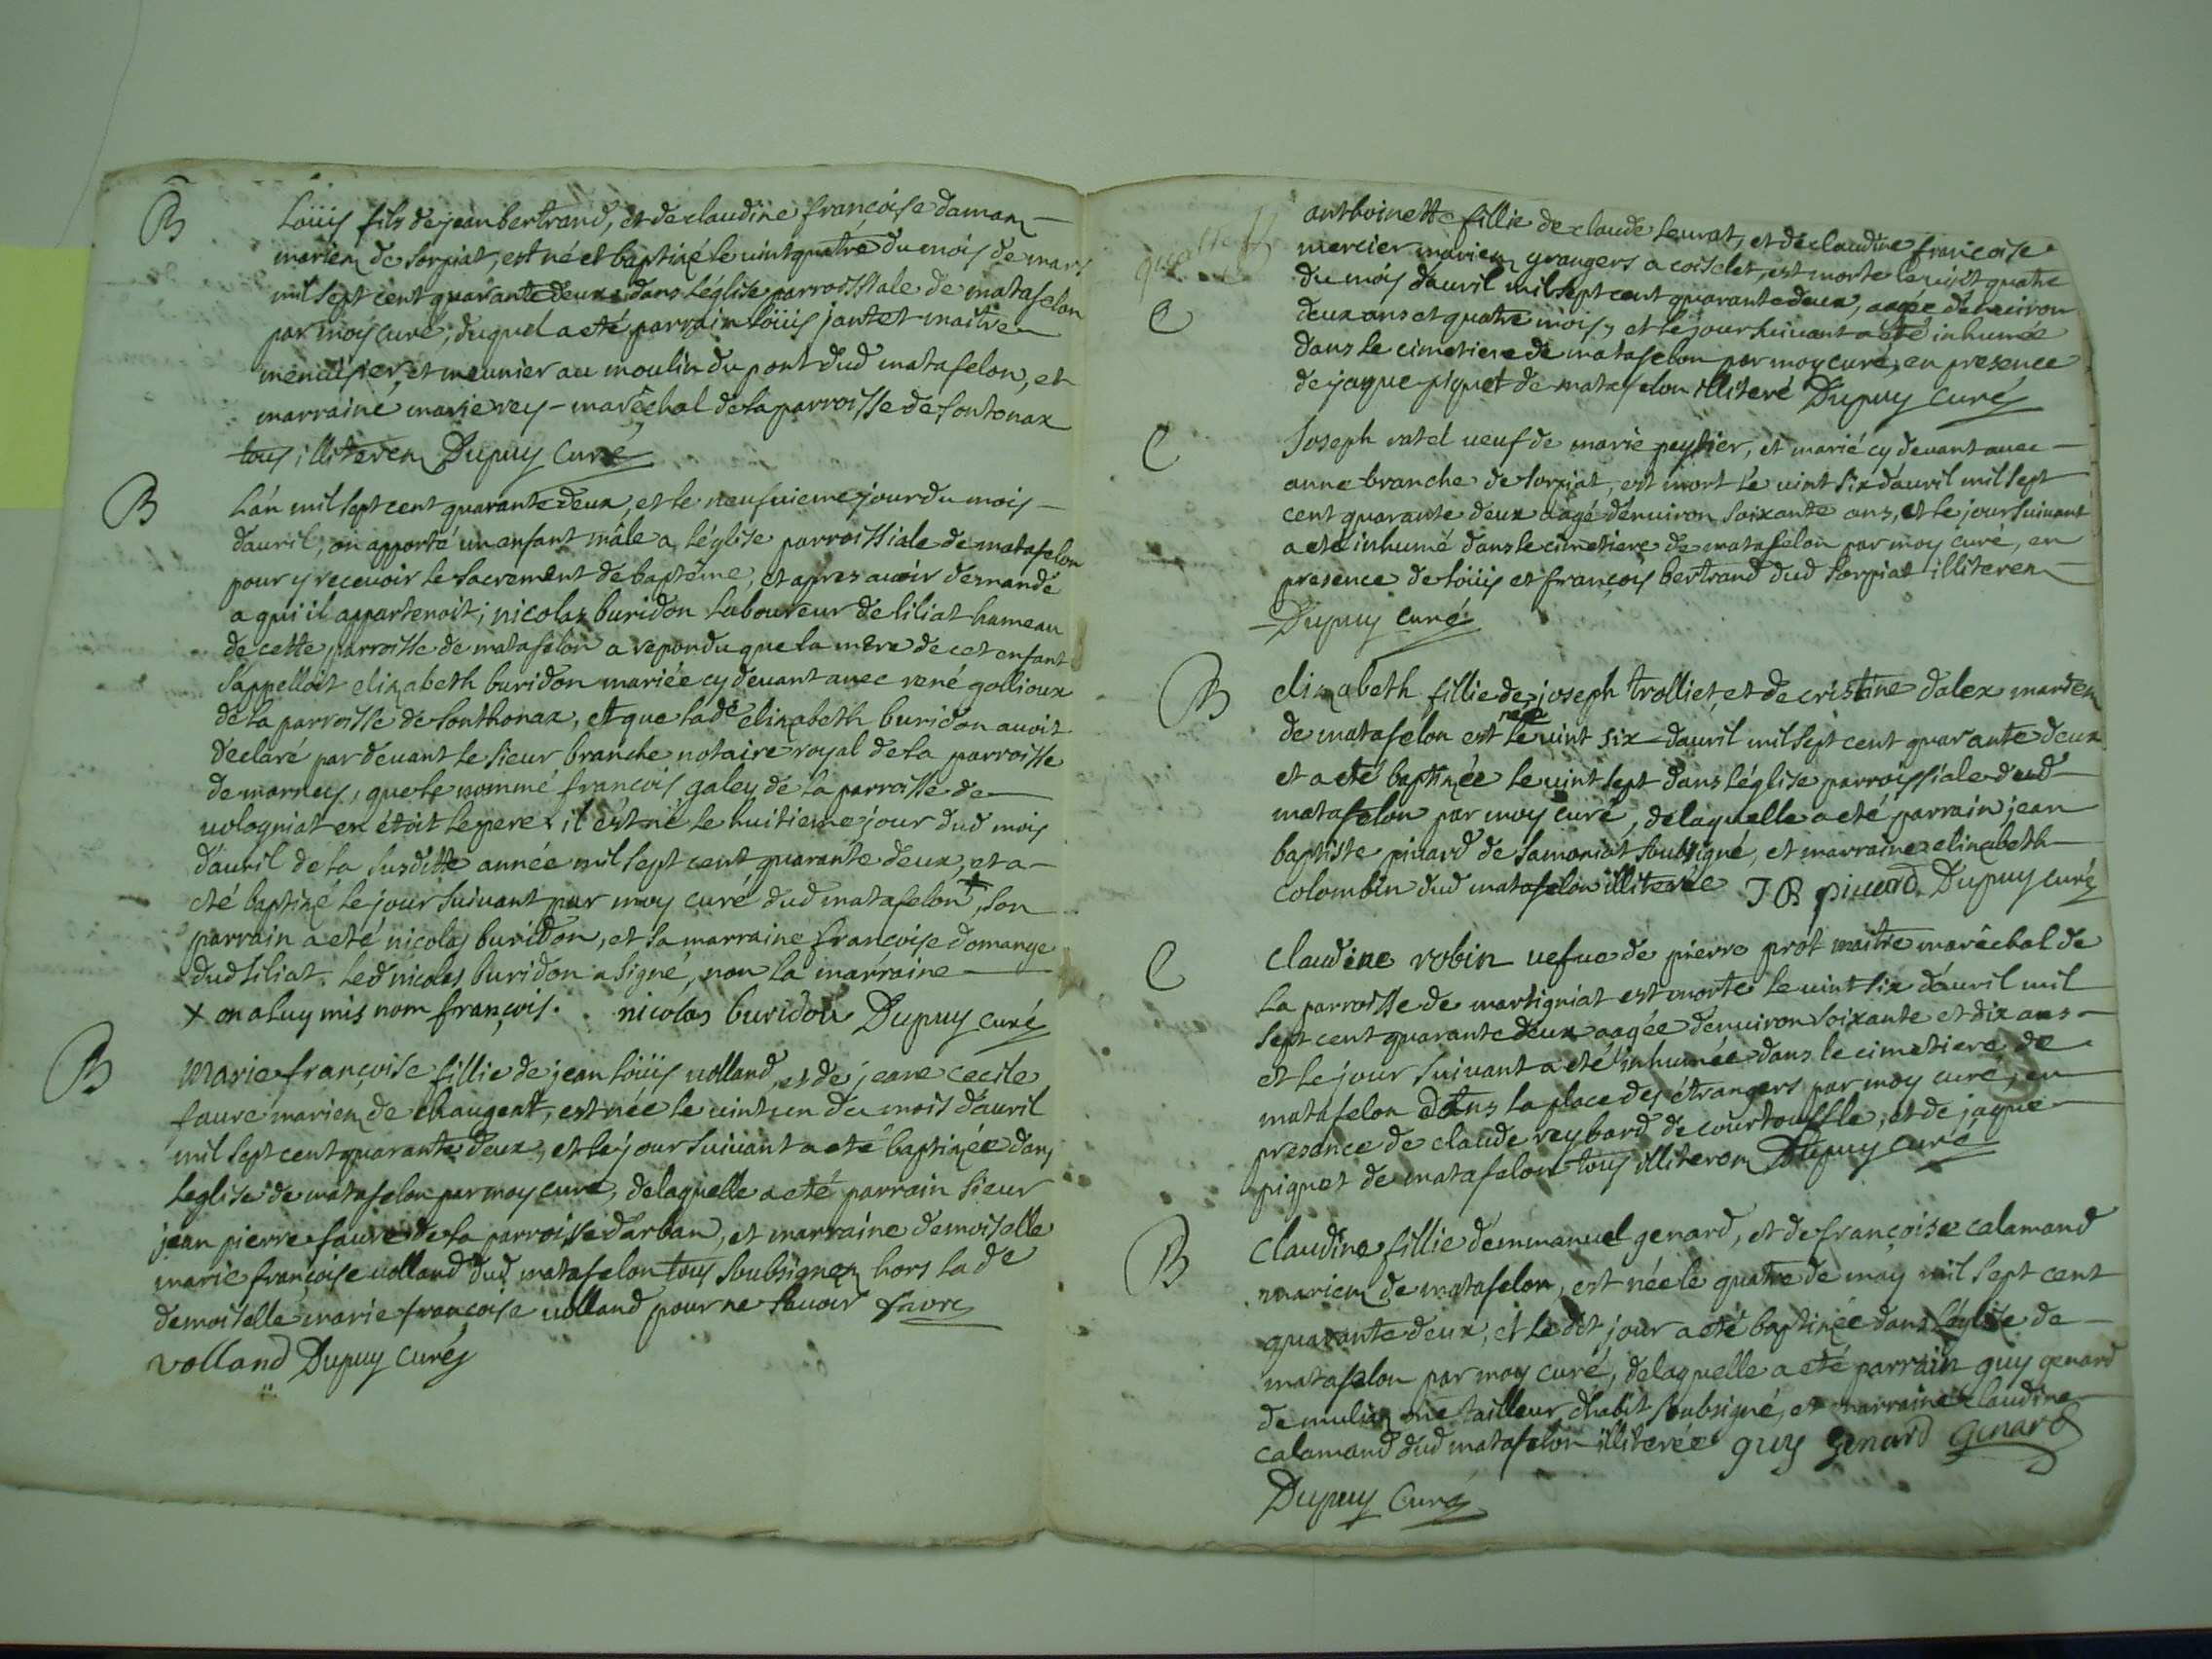 B
Loüis fils de jean bertrand, et de claudine françoise daman
mariez de sorpiat, est né et baptizé le vint quatre du mois de mars
mil sept cent quarante deux dans l'église parroissiale de matafelon
par moy curé, duquel a eté parrain loüis jantet maitre
menuisier, et meunier au moulin du pont dud matafelon, et
marraine marie rey - maréchal de la parroisse de sontonax
tous illiterez Dupuy Curé
B
L'an mil sept cent quarante deux, et le neufvieme jour du mois
d'avril, on apporté un enfant mâle a l'église parroissiale de matafelon
pour y recevoir le sacrement de baptême, et apres avoir demandé
a qui il appartenoit; nicolas buridon laboureur de siliat hameau
de cette parroisse de matafelon a repondu que la mère de cet enfant
s'appelloit elizabeth buridon mariée cy devant avec rené gollioux
de la parroisse de sonthonax, et que lade elizabeth buridon avoit
déclaré par devant le sieur branche notaire royal de la parroisse
de marnay, que le nommé françois galey de la parroisse de
vologniat en étoit le pere. il est né le huitieme jour dud mois
d'avril de la susditte année mil sept cent quarante deux, et a
eté baptizé le jour suivant par moy curé dud matafelon +, son
parrain a eté nicolas buridon, et sa marraine françoise domange
dud siliat. led nicolas buridon a signé, non la marraine
+ on a luy mis nom françois. nicolas buridon Dupuy curé
B
Marie françoise fillie de jean loüis volland, et de jeane cecile
favre mariez de chaugeat, est née le vint un du mois d'avril
mil sept cent quarante deux, et le jour suivant a eté baptizée dans
l'eglise de matafelon par moy curé, de laquelle a eté parrain sieur
jean pierre favre de la parroisse d'arban, et marraine demoiselle
marie françoise volland dud matafelon tous soubsignez hors lade
demoiselle marie françoise volland pour ne savoir favre
volland Dupuy curé
anthoinette fillie de claude levrat, et de claudine françoise
mercier mariez grangers a coiselet, est morte le vint quatre
du mois d'avril mil sept cent quarante deux, aagée d'environ
C
deux ans et quatre mois, et le jour suivant a eté inhumée
dans le cimetiere de matafelon par moy curé, en presence
de jaque piquet de matafelon illiteré Dupuy curé
C
Joseph ratel veuf de marie peysier, et marié cy devant avec
anne branche de sorpiat, est mort le vint six d'avril mil sept
cent quarante deux aagé d'environ soixante ans, et le jour suivant
a eté inhumé dans le cimetiere de matafelon par moy curé, en
presence de loüis et françois bertrand dud sorpiat illiterez
Dupuy curé
B
elizabeth fillie de joseph trolliet, et de cristine dalex mariez
de matafelon est née le vint six d'avril mil sept cent quarante deux
et a eté baptizée le vint sept dans l'église parroissiale dud
matafelon par moy curé, de laquelle a eté parrain jean
baptiste pivard de samoniat soubsigné, et marraine elizabeth
colombin dud matafelon illiterée J B pivard Dupuy curé
C
Claudine robin vefve de pierre prot maitre maréchal de
la parroisse de martigniat est morte le vint six d'avril mil
sept cent quarante deux aagée d'environ soixante et dix ans
et le jour suivant a eté inhumée dans le cimetiere de
matafelon dans la place des étrangers par moy curé, en
presance de claude reybard de courtouffle, et de jaque
piquet de matafelon tous illiterez Dupuy curé
B
Claudine fillie d'emmanuel genard, et de françoise calamand
mariez de matafelon, est née le quatre de may mil sept cent
quarante deux, et le dit jour a eté baptizée dans l'église de
matafelon par moy curé, de laquelle a eté parrain guy genard
de mulia me tailleur d'habit soubsigné, et marraine claudine
calamand dud matafelon illiterée guy genard genard
Dupuy Curé